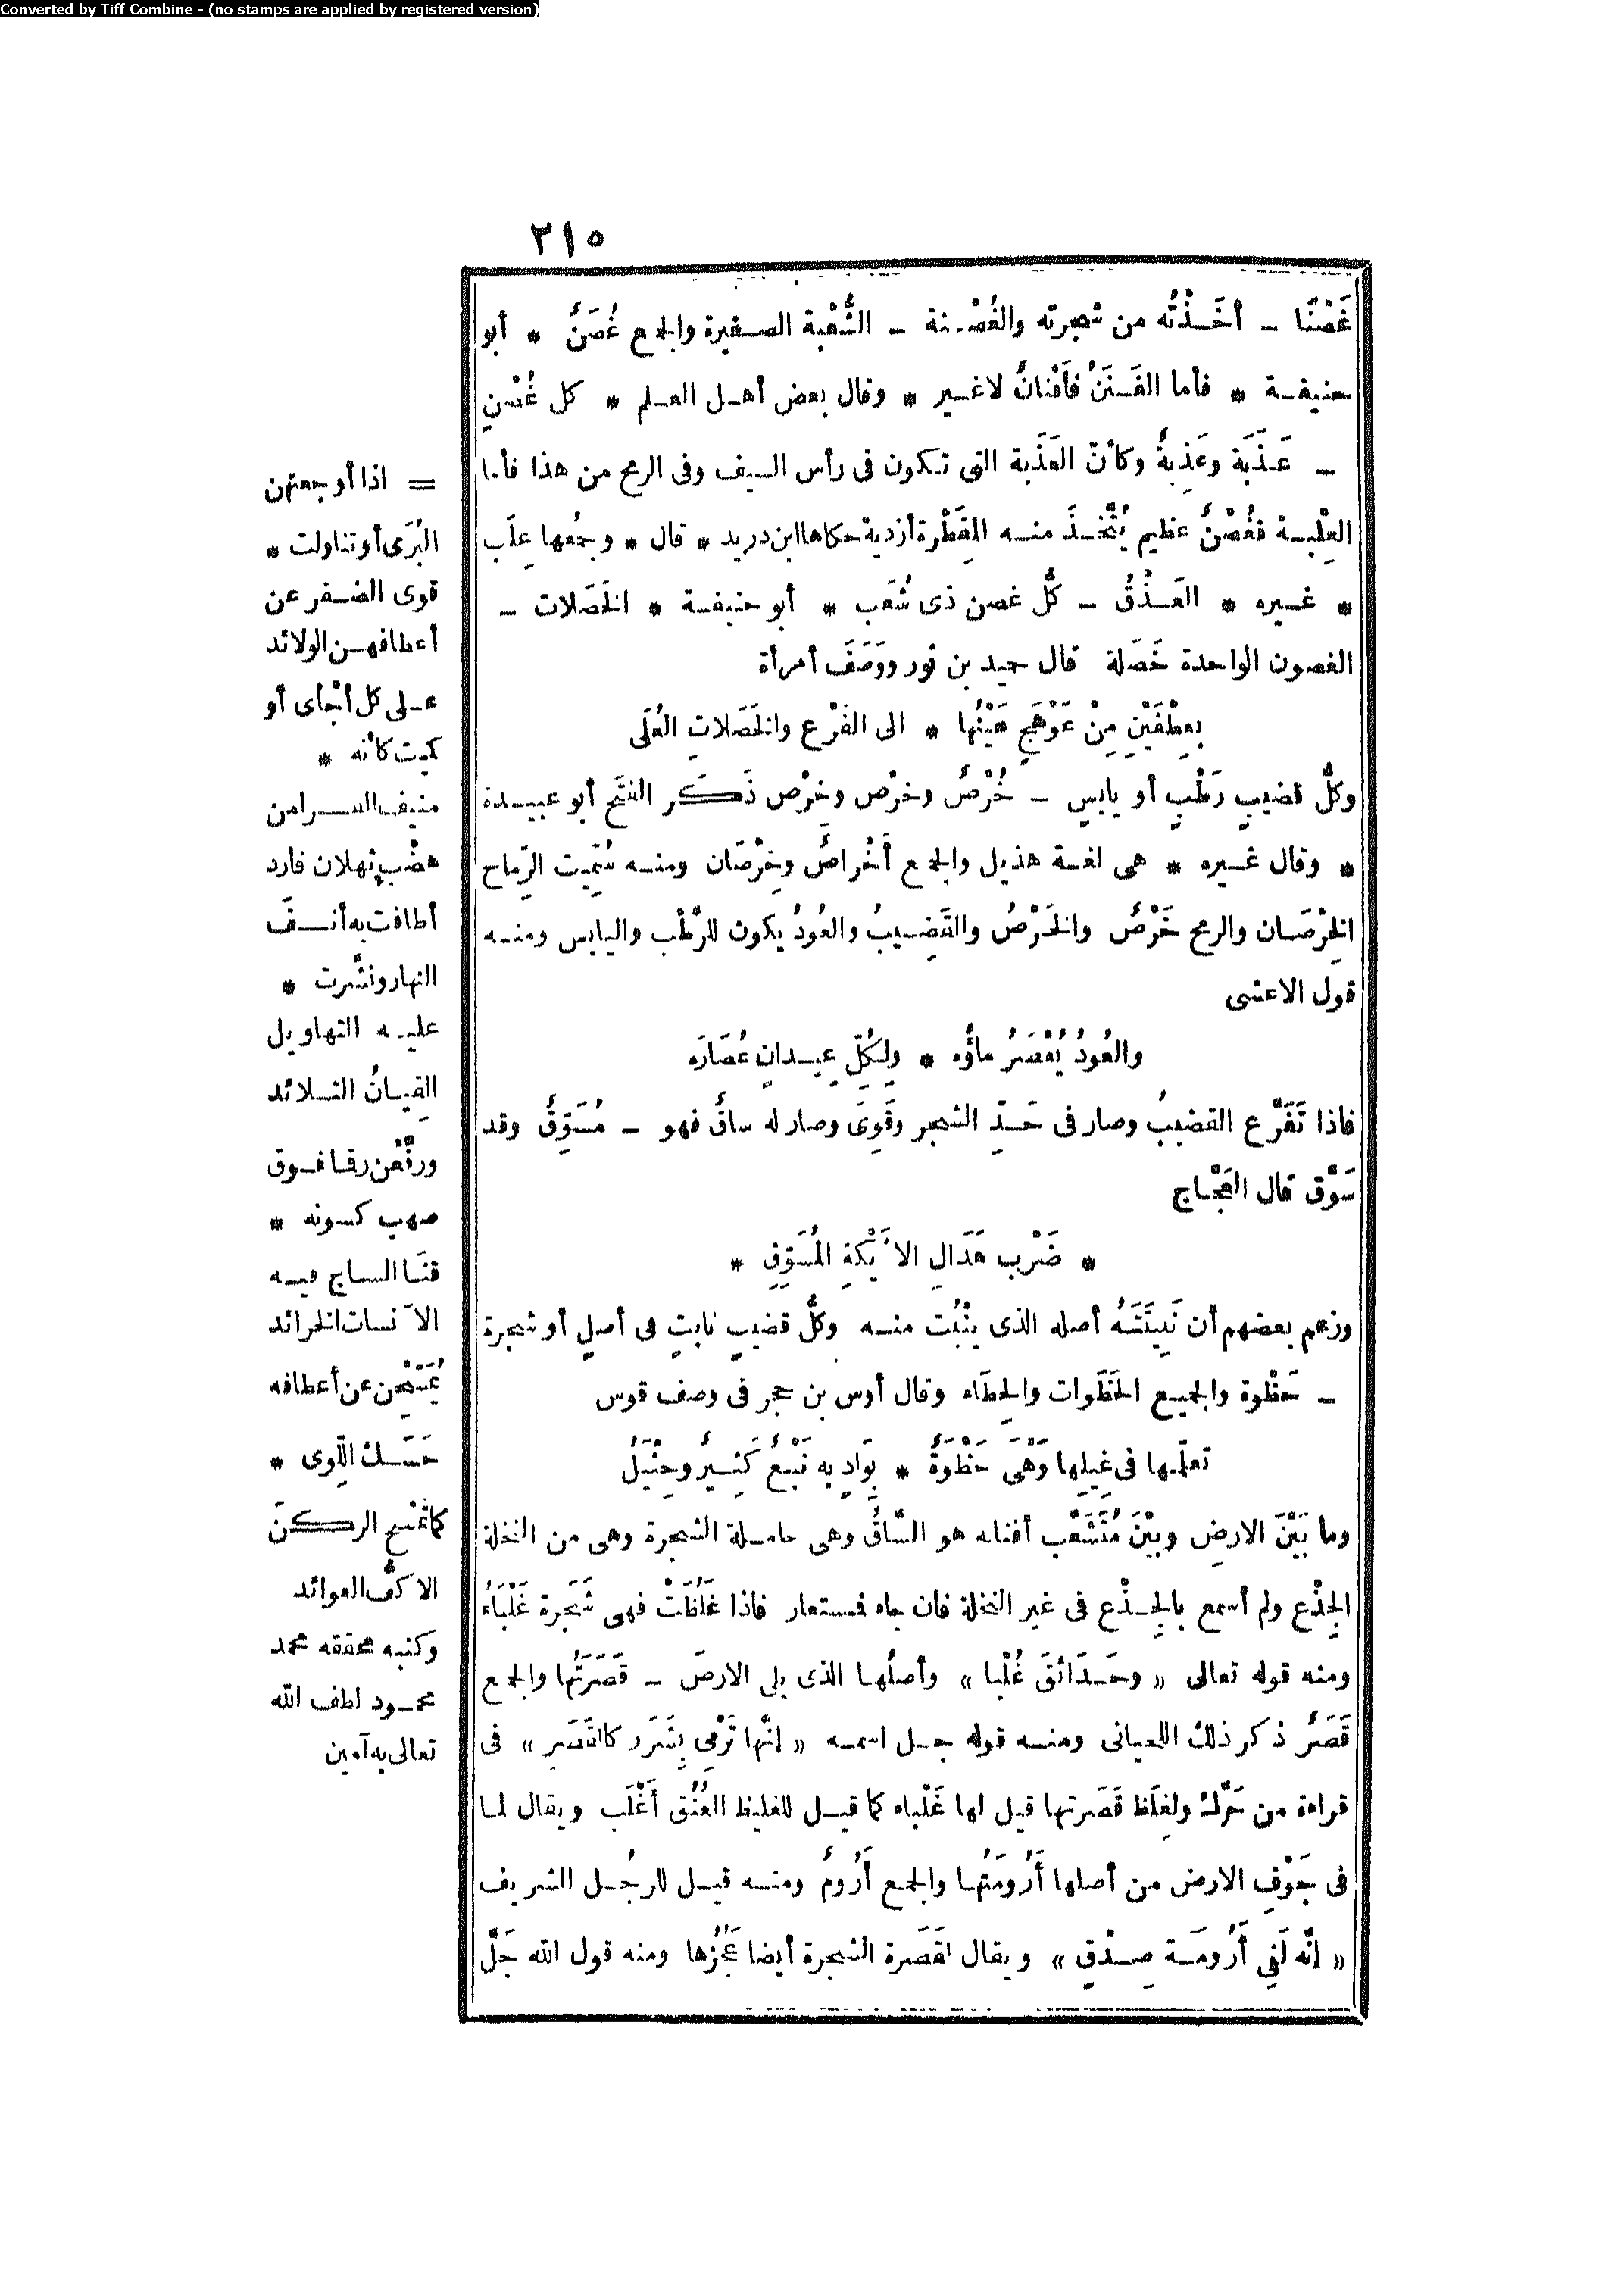 Converted by Tiff Combine - (no stamps are applied by registered version)
٢١٥
غَصْنًا ــ أخَــذْتُه من شجرته والغُصْـنة ــ الشُّعْبة الصـغيرة والجمع غُصَنٌ * أبو
حنيفـة * فأما الفَـنَنُ فأَفْنانٌ لاغـير * وقال بعض أهـل العـلم * كل غُصْنٍ
ــ عَـذَبَة وعَذِبةٌ وكأنّ العَذَبة التى تـكون فى رأس السيف وفى الرمح من هذا فأما
العِلْبــة فغُصْنٌ عظيم يُتَّخـذَ منـه المِقَطْرة أزدية حكاها ابن دريد * قال * وجمعها عِلَب
* غـيره * العَـذْقُ ــ كلُّ غصن ذى شُعَب * أبو حنيفـة * الخَصَلات ــ
الغصون الواحدة خَصَلة قال حميد بن ثور ووَصَفَ أمرأة
بِعِطْفَيْنِ مِنْ عَوْهَجٍ هَيَّنُها * الى الفَرْع والخَصَلاتِ العُلَى
وكلُّ قضيبٍ رَطْبٍ أو يابسٍ ــ خُرْصٌ وخَرْص وخِرْص ذَكَـر الفتح أبو عبيـدة
* وقال غـيره * هى لغـة هذيل والجمع أَخْراصٌ وخِرْصَان ومنـه سُمِّيت الرِّماح
الخِرْصَـان والرمح خَرْصٌ والخَـرْصُ والقَضِـيبُ والعُودُ يكون للرَّطْب واليابس ومنـه
قول الاعشى
والعُودُ يُعْصَرُ ماؤُه * ولِكُلِّ عِيـدانٍ عُصَارَه
فاذا تَفَرَّع القضيبُ وصار فى حَـدّ الشجر وقَوِىَ وصار له ساقٌ فهو ــ مُسَوِّقٌ وقد
سَوَّق قال العَجَّـاج
* ضَرْب هَدَالِ الأَيْكَةِ المُسَوِّقِ *
وزعم بعضهم أن نَبِيتَتَـهُ أصله الذى ينْبُت منـه وكلُّ قضيبٍ نابتٍ فى أصلٍ أو شجرة
ــ حَظْوة والجميـع الحَظَوات والحِظَاء وقال أوس بن حجر فى وصف قوس
تعلّمها فى غِيلِها وَهْىَ حَظْوَةٌ * بِوَادٍ به نَبْعٌ كَثِـيرٌ وحِثْيَلُ
وما بَيْنَ الارضِ وبيْنَ مُتَشَعَّب أفنانه هو السَّاقُ وهى حامـلة الشجرة وهى من النخلة
الجِذْع ولم أسمع بالجِـذْع فى غير النخلة فان جاء فمستعار فاذا غَلُظَتْ فهى شَجَرة غَلْبَاءُ
ومنه قوله تعالى « وحَـدَائقَ غُلْبا » وأصلُهـا الذى يلى الارضَ ــ قَصَرَتُها والجمع
قَصَرٌ ذكر ذلك اللحيانى ومنـه قوله جـل اسمـه « انَّها تَرْمِى بِشَرَرٍ كالقَصَر » فى
قراءة من حَرَّك ولغِلَظ قَصَرتها قيل لها غَلْباء كما قيـل للغليظ العُنُق أَغْلَب ويقال لما
فى جَوْفِ الارض من أصلها أَرُومَتُهـا والجمع أَرُومٌ ومنـه قيـل للرجُـل الشريف
« إنَّه لَفِى أَرُومَـة صِـدْقٍ » ويقال لقَصَرة الشجرة أيضا عَجُزُها ومنه قول الله جَلَّ
= اذا أوجعتهن
البُرَى أو تناولت *
قوى الضـفر عن
أعطافهـن الولائد
عـلى كل أجْأى أو
كميت كأنه *
منيف الســرا من
هضْبِ ثهلان فارد
أطافت به أنـفَ
النهار ونشّرت *
عليـه التهاويل
القِيـانُ التـلائد
ورفَّعْن رقما فـوق
صهب كسونه *
قنَـا الساج فيـه
الآنسات الخرائد
يُمَسِّحْن عن أعطافه
حَسَـك اللِّوى *
كما تَمْسَح الركـنَ
الاكفُّ العوائد
وكتبه محققه محمد
محمـود لطف الله
تعالى به آمين